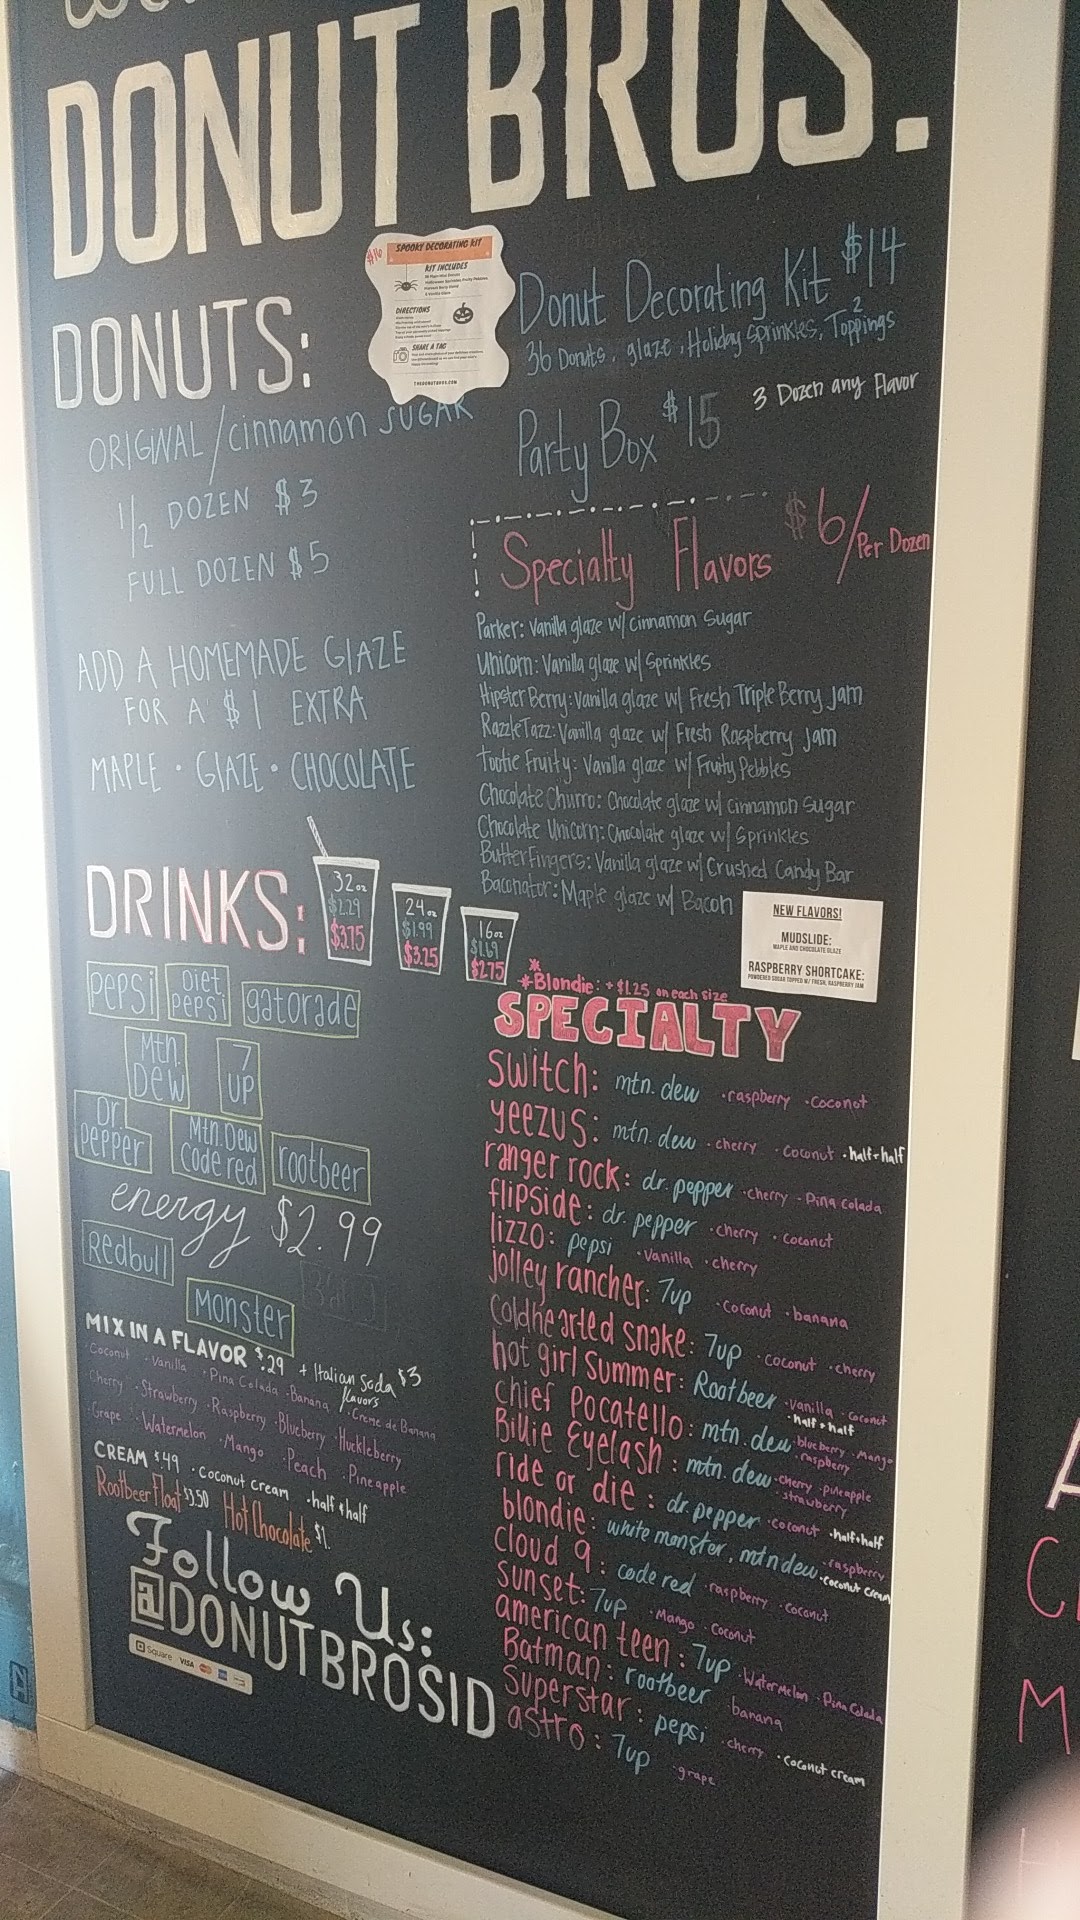 DONUT BROS.
DONUTS:
ORIGINAL/cinnamon SUGAR
1/2 DOZEN $3
FULL DOZEN $5
ADD A HOMEMADE GLAZE
FOR A $1 EXTRA
MAPLE • GLAZE • CHOCOLATE
$16
SPOOKY DECORATING KIT
KIT INCLUDES
DIRECTIONS
SHARE & TAG
THEDONUTBROS.COM
Donut Decorating Kit $14
36 Donuts, glaze, Holiday Sprinkles, 2 Toppings
Party Box $15
3 Dozen any Flavor
Specialty Flavors $6/Per Dozen
Parker: Vanilla glaze w/ cinnamon Sugar
Unicorn: Vanilla glaze w/ Sprinkles
Hipster Berry: Vanilla glaze w/ Fresh Triple Berry Jam
RazzleTazz: Vanilla glaze w/ Fresh Raspberry Jam
Tootie Fruity: Vanilla glaze w/ Fruity Pebbles
Chocolate Churro: Chocolate glaze w/ cinnamon Sugar
Chocolate Unicorn: Chocolate glaze w/ Sprinkles
ButterFingers: Vanilla glaze w/ Crushed Candy Bar
Baconator: Maple glaze w/ Bacon
NEW FLAVORS!
MUDSLIDE:
MAPLE AND CHOCOLATE GLAZE
RASPBERRY SHORTCAKE:
POWDERED SUGAR TOPPED W/ FRESH, RASPBERRY JAM
DRINKS:
32oz
$2.29
$3.75
24oz
$1.99
$3.25
16oz
$1.69
$2.75
pepsi
Diet pepsi
gatorade
Mtn. Dew
7 UP
Dr. pepper
Mtn. Dew Code red
rootbeer
energy $2.99
Redbull
Monster
MIX IN A FLAVOR $.29
+ Italian Soda $3
flavors
• Coconut • Vanilla • Pina Colada • Banana • Creme de Banana
Cherry • Strawberry • Raspberry • Blueberry • Huckleberry
Grape • Watermelon • Mango • Peach • Pineapple
CREAM $.49 • Coconut cream • half & half
Rootbeer Float $3.50 Hot Chocolate $1.
Follow Us:
@DONUTBROSID
Square VISA
*Blondie: + $1.25 on each size
SPECIALTY
Switch: mtn. dew • raspberry • Coconut
yeezus: mtn. dew • cherry • coconut • half+half
ranger rock: dr. pepper • cherry • Pina colada
flipside: dr. pepper • cherry • coconut
lizzo: pepsi • Vanilla • cherry
jolley rancher: 7up • coconut • banana
coldhearted snake: 7up • coconut • cherry
hot girl Summer: Rootbeer • vanilla • coconut • half + half
chief Pocatello: mtn. dew • blueberry • Mango • raspberry
Billie Eyelash: mtn. dew • cherry • pineapple • strawberry
ride or die: dr. pepper • coconut • half+half
blondie: white monster, mtn dew • raspberry • coconut cream
cloud 9: code red • raspberry • coconut
sunset: 7up • Mango • coconut
american teen: 7up • Watermelon • Pina Colada
Batman: rootbeer banana
Superstar: pepsi • cherry • coconut cream
astro: 7up • grape